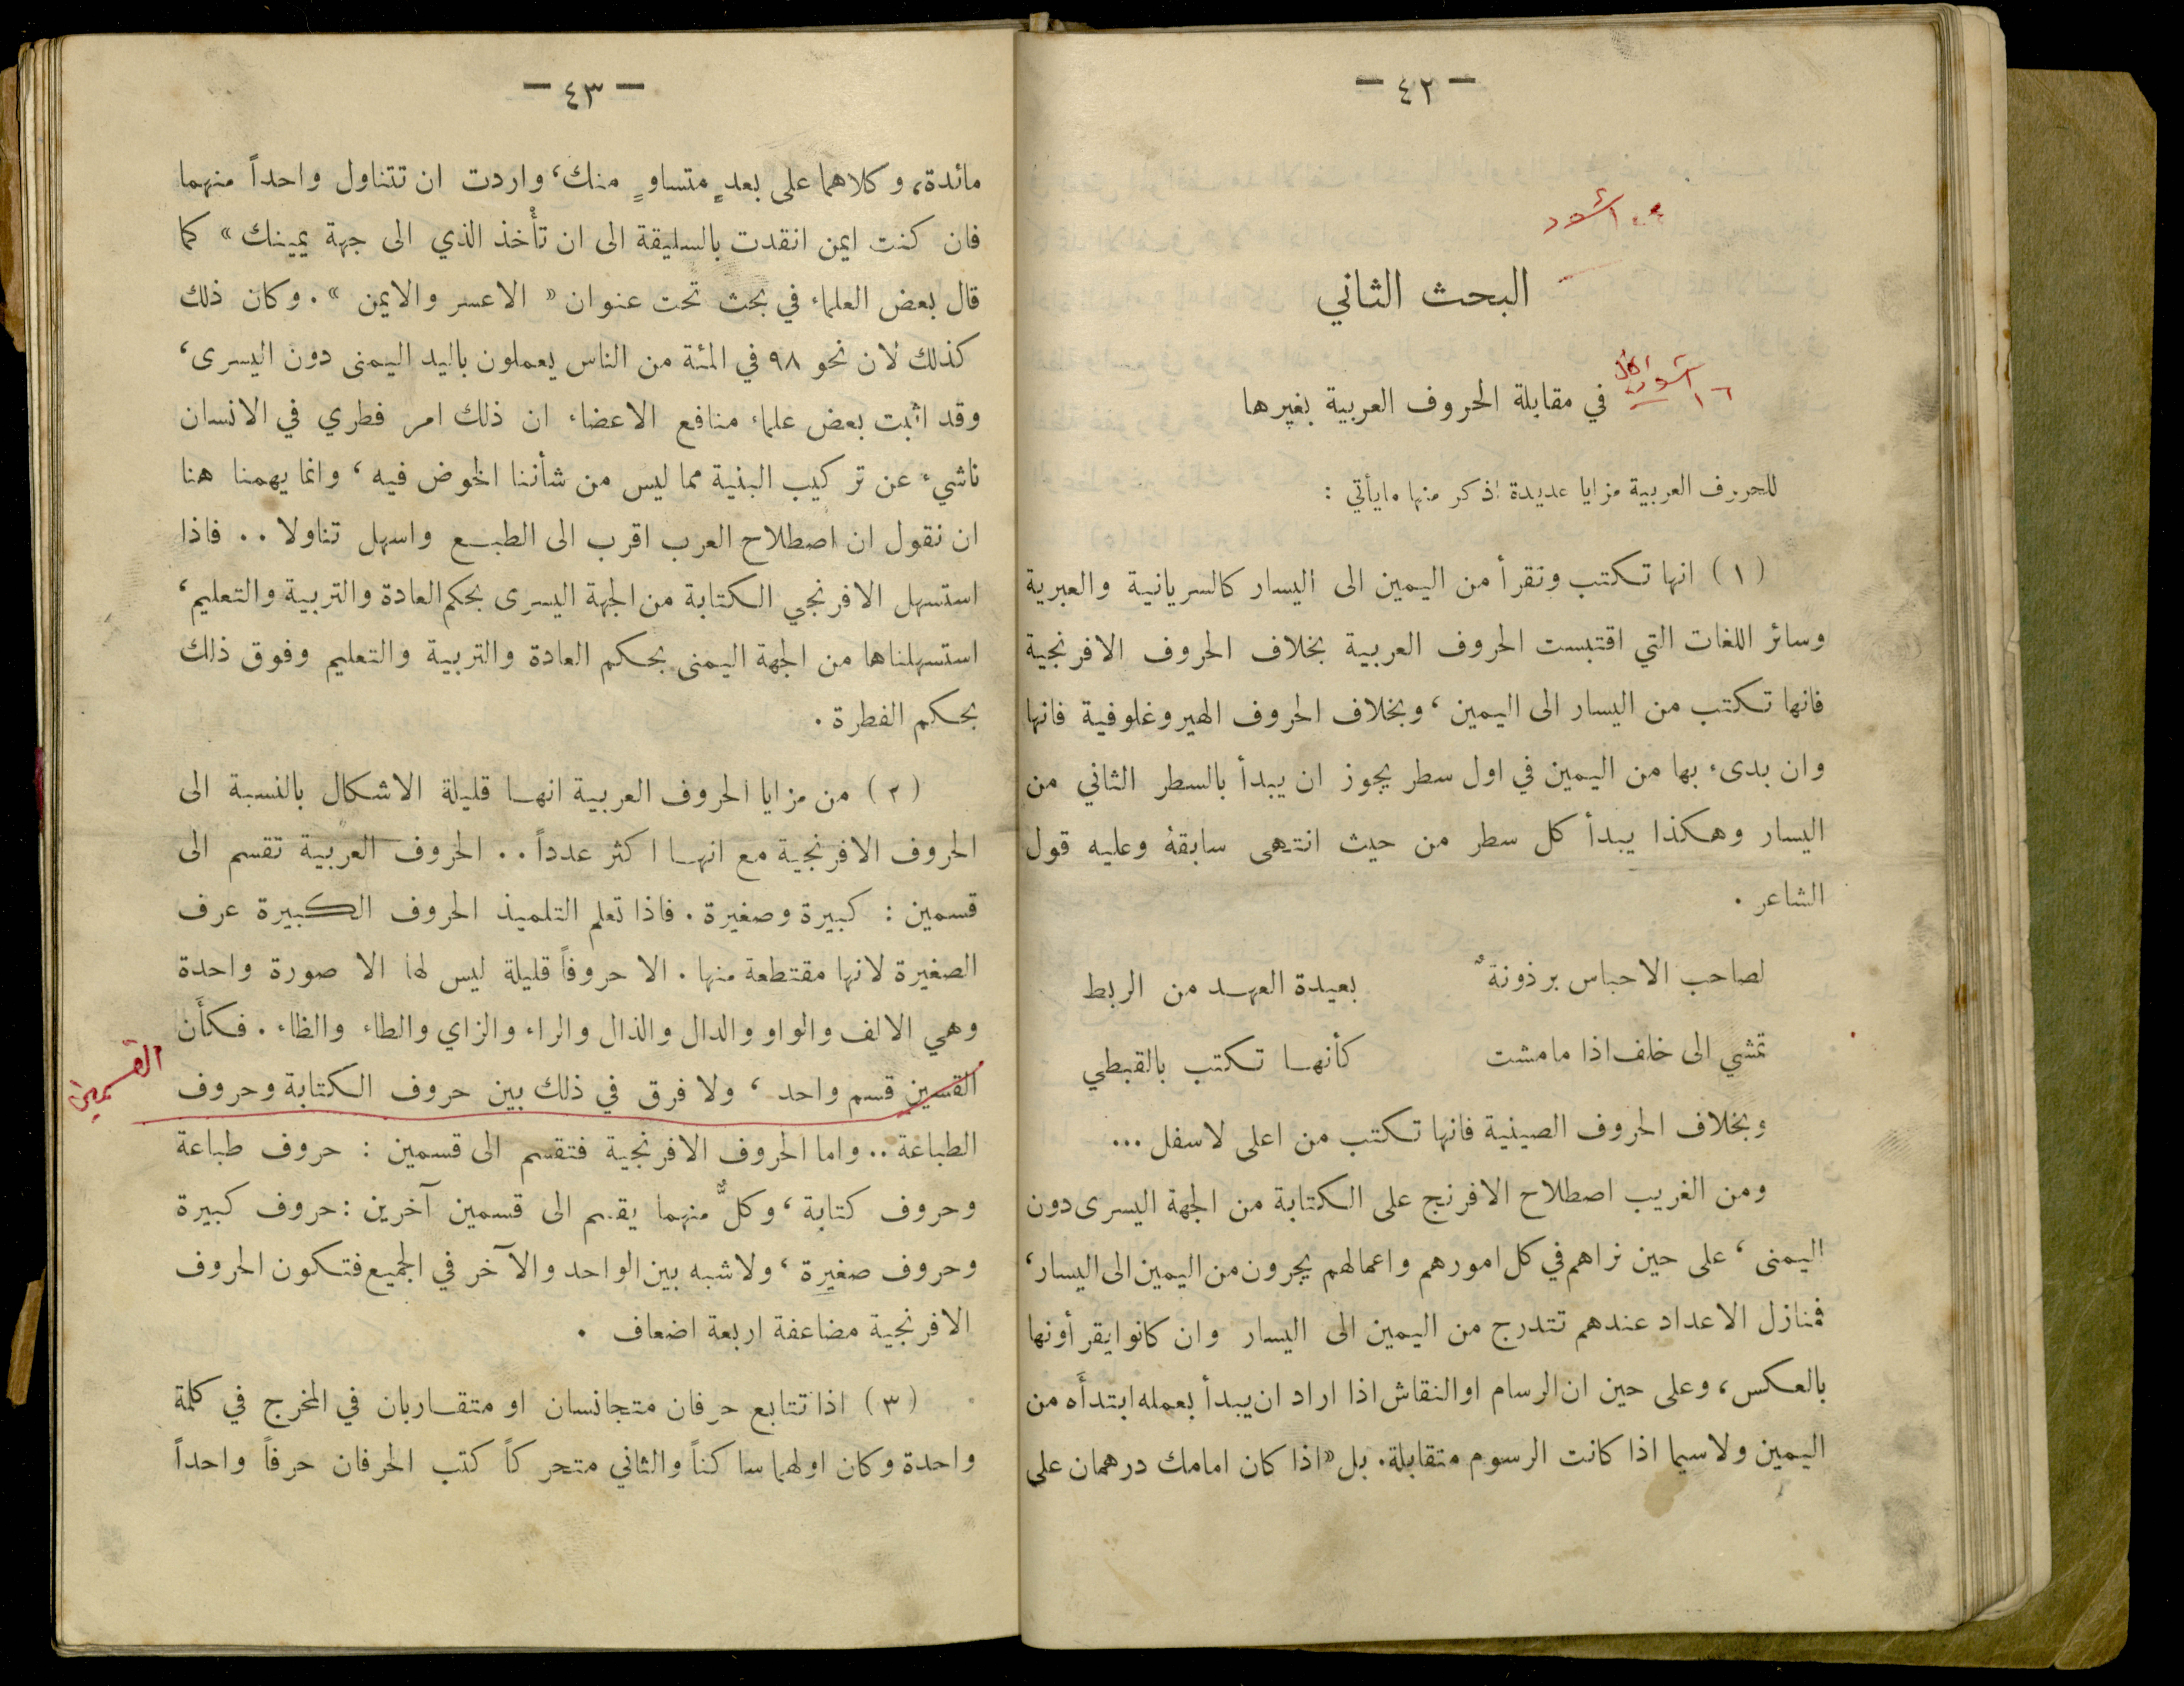 — ٤٢ —
البحث الثاني
في مقابلة الحروف العربية بغيرها
للحروف العربية مزايا عديدة اذكر منها مايأتي :
( ١ ) انها تكتب وتقرأ من اليمين الى اليسار كالسريانية والعبرية
وسائر اللغات التي اقتبست الحروف العربية بخلاف الحروف الافرنجية
فانها تكتب من اليسار الى اليمين ، وبخلاف الحروف الهيروغلوفية فانها
وان بدىء بها من اليمين في اول سطر يجوز ان يبدأ بالسطر الثاني من
اليسار وهكذا يبدأ كل سطر من حيث انتهى سابقهُ وعليه قول
الشاعر .
لصاحب الاحباس برذونةٌ بعيدة العهد من الربط
تمشي الى خلف اذا مامشت كأنها تكتب بالقبطي
وبخلاف الحروف الصينية فانها تكتب من اعلى لاسفل ...
ومن الغريب اصطلاح الافرنج على الكتابة من الجهة اليسرى دون
اليمنى ، على حين نراهم في كل امورهم واعمالهم يجرون من اليمين الى اليسار ،
فمنازل الاعداد عندهم تتدرج من اليمين الى اليسار وان كانوا يقرأونها
بالعكس ، وعلى حين ان الرسام او النقاش اذا اراد ان يبدأ بعمله ابتدأَه من
اليمين ولاسيما اذا كانت الرسوم متقابلة . بل « اذا كان امامك درهمان على
— ٤٣ —
مائدة ، وكلاهما على بعدٍ متساوٍ منك ، واردت ان تتناول واحداً منهما
فان كنت ايمن انقدت بالسليقة الى ان تأْخذ الذي الى جهة يمينك » كما
قال بعض العلماء في بحث تحت عنوان « الاعسر والايمن » . وكان ذلك
كذلك لان نحو ٩٨ في المئة من الناس يعملون باليد اليمنى دون اليسرى ،
وقد اثبت بعض علماء منافع الاعضاء ان ذلك امر فطري في الانسان
ناشيء عن تركيب البنية مما ليس من شأننا الخوض فيه ، وانما يهمنا هنا
ان نقول ان اصطلاح العرب اقرب الى الطبع واسهل تناولا .. فاذا
استسهل الافرنجي الكتابة من الجهة اليسرى بحكم العادة والتربية والتعليم ،
استسهلناها من الجهة اليمنى بحكم العادة والتربية والتعليم وفوق ذلك
بحكم الفطرة .
( ٢ ) من مزايا الحروف العربية انها قليلة الاشكال بالنسبة الى
الحروف الافرنجية مع انها اكثر عدداً .. الحروف العربية تقسم الى
قسمين : كبيرة وصغيرة . فاذا تعلم التلميذ الحروف الكبيرة عرف
الصغيرة لانها مقتطعة منها . الا حروفاً قليلة ليس لها الا صورة واحدة
وهي الالف والواو والدال والذال والراء والزاي والطاء والظاء . فكأَن
القسمين
القسين قسم واحد ، ولا فرق في ذلك بين حروف الكتابة وحروف
الطباعة .. واما الحروف الافرنجية فتقسم الى قسمين : حروف طباعة
وحروف كتابة ، وكلٌّ منهما يقسم الى قسمين آخرين : حروف كبيرة
وحروف صغيرة ، ولاشبه بين الواحد والآخر في الجميع فتكون الحروف
الافرنجية مضاعفة اربعة اضعاف .
( ٣ ) اذا تتابع حرفان متجانسان او متقاربان في المخرج في كلمة
واحدة وكان اولهما ساكناً والثاني متحركاً كتب الحرفان حرفاً واحداً